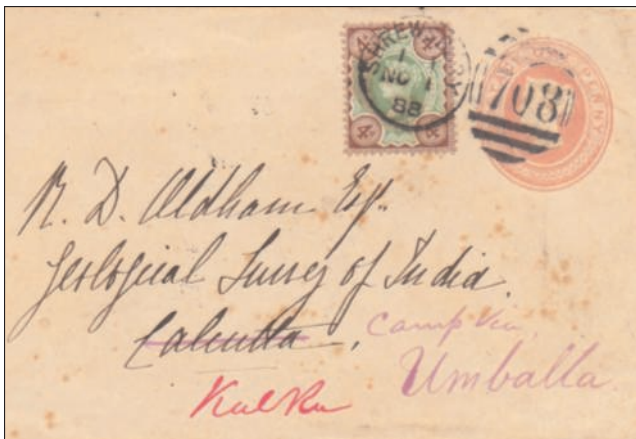 SHREWSBURY
1
NO 1
88
708
PENNY
4D
4D
R. D. Oldham Esqr.
Geological Survey of India.
Calcutta, Camp via
Umballa
Kalka